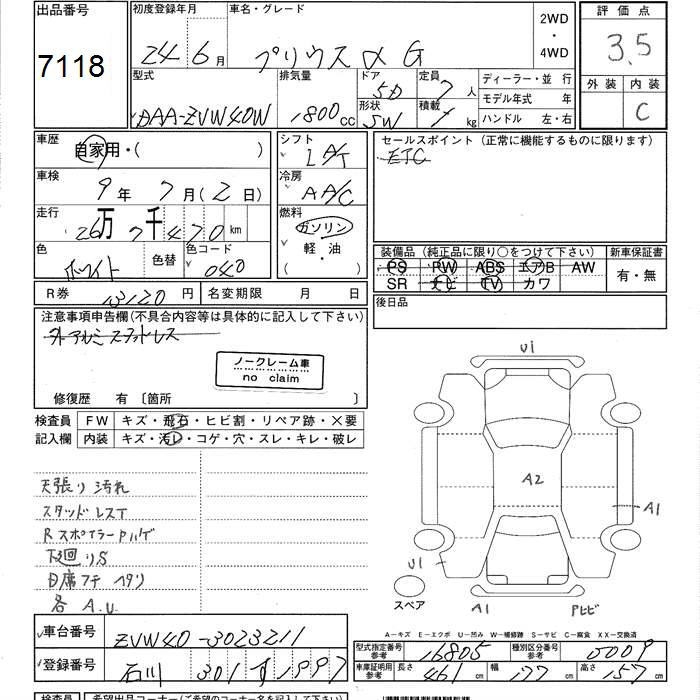 出品番号
7118
初度登録年月
24 年 6 月
車名・グレード
プリウスα G
2WD
・
4WD
評価点
3.5
外装 内装
C
型式
DAA-ZVW40W
排気量
1800cc
ドア
5D
形状
SW
定員
7人
積載
kg
ディーラー・並 行
モデル年式 年
ハンドル 左・右
車歴
自家用・( )
車検
9年 7月(2日)
走行
26万7千470km
色
ホワイト
色替
色コード
040
R券 13120円
名変期限 月 日
シフト
IA/T
冷房
AA/C
燃料
ガソリン
・
軽・油
( )
セールスポイント(正常に機能するものに限ります)
ETC
装備品(純正品に限り○をつけて下さい)
PS PW ABS エアB AW
SR ナビ TV カワ
新車保証書
有・無
後日品
注意事項申告欄(不具合内容等は具体的に記入して下さい)
外アルミスタットレス
ノークレーム車
no claim
修復歴 有 〔箇所 〕
検査員 FW キズ・飛石・ヒビ割・リペア跡・×要
記入欄 内装 キズ・汚レ・コゲ・穴・スレ・キレ・破レ
天張り汚れ
スタッドレスT
RスポイラーPハゲ
下廻りS
D席フチ ヘタリ
各A.U
U1
A2
A1
U1
A1
PLヒビ
スペア
A-キズ E-エクボ U-凹み W-補修跡 S-サビ C-腐食 XX-交換済
車台番号 ZVW40-3023211
登録番号 石川 301 す 1997
型式指定番号 参考 16805
種別区分番号 参考 0009
車庫証明用 参考 長さ 461cm 幅 177cm 高さ 157cm
検査員 希望出品コーナー(ご希望のコーナー名を記入して下さい)